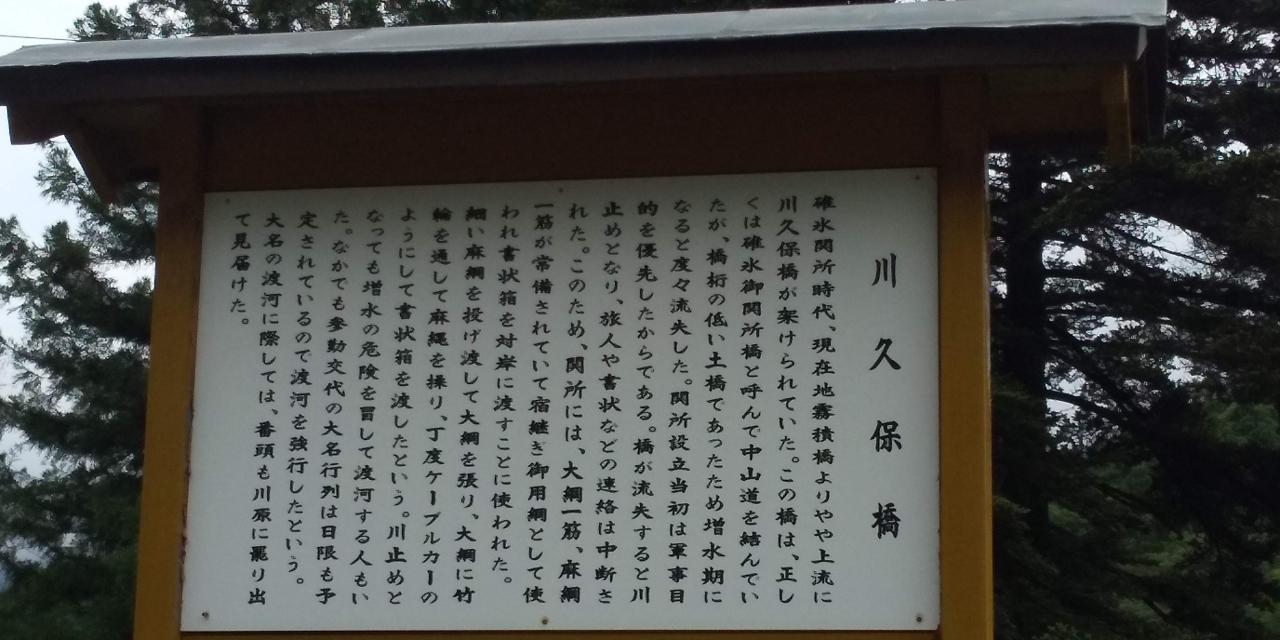 川久保橋
碓氷関所時代、現在地霧積橋よりやや上流に
川久保橋が架けられていた。この橋は、正し
くは碓氷御関所橋と呼んで中山道を結んでい
たが、橋桁の低い土橋であったため増水期に
なると度々流失した。関所設立当初は軍事目
的を優先したからである。橋が流失すると川
止めとなり、旅人や書状などの連絡は中断さ
れた。このため、関所には、大綱一筋、麻綱
一筋が常備されていて宿継ぎ御用綱として使
われ書状箱を対岸に渡すことに使われた。
細い麻綱を投げ渡して大綱を張り、大綱に竹
輪を通して麻縄を操り、丁度ケーブルカーの
ようにして書状箱を渡したという。川止めと
なっても増水の危険を冒して渡河する人もい
た。なかでも参勤交代の大名行列は日限も予
定されているので渡河を強行したという。
大名の渡河に際しては、番頭も川原に罷り出
て見届けた。